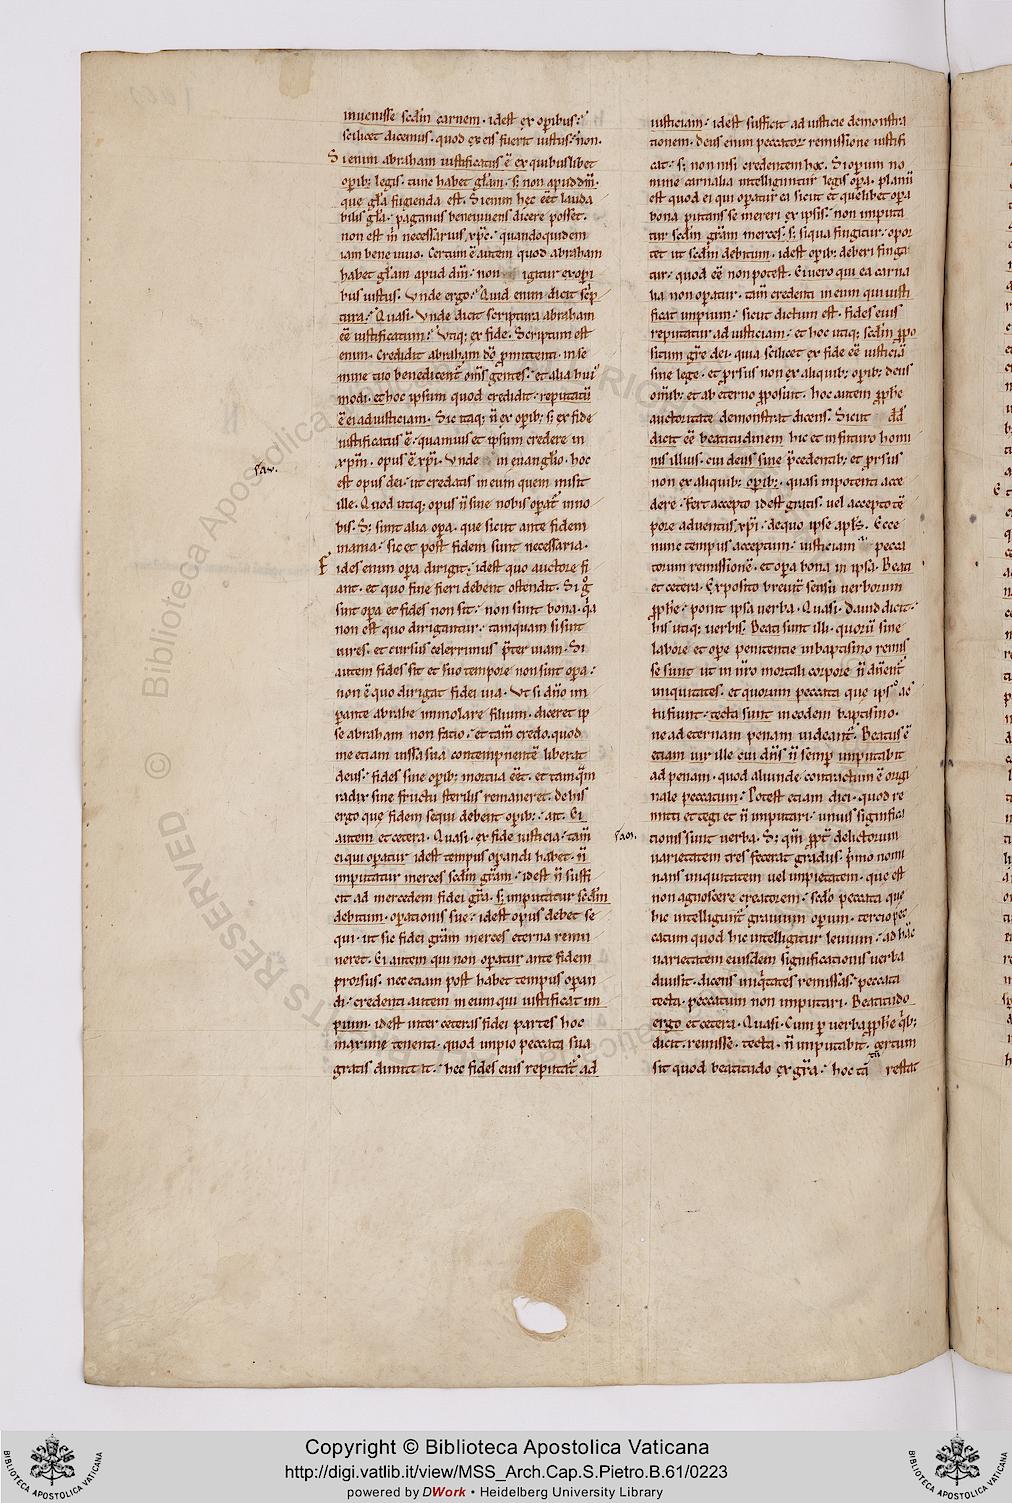 inuenisse scdm carnem. idest ex operibus.
scilicet dicemus. quod ex eis fuerit iustus. non.
Si enim abraham iustificatus ē ex quibuslibet
operib; legis. tunc habet glam. s; non apud dm.
que gla fugienda est. Si enim hec eēt lauda
bilis gla. paganus beneuiuens dicere posset.
non est m necessarius xpc. quandoquidem
iam bene uiuo. Certum ē autem quod abraham
habet glam apud dm. non igitur ex operi
bus iustus. Vnde ergo. Quid enim dicit scrip
tura. Quasi. Vnde dicit scriptura abraham
eē iustificatum. Vtiq; ex fide. Scriptum est
enim. Credidit abraham dō promittenti. in se
mine tuo benedicent oms gentes. et alia hui
modi. et hoc ipsum quod credidit. reputatū
ē ei ad iusticiam. Sic itaq; ñ ex operib; s; ex fide
iustificatus ē. quamuis et ipsum credere in
xpm. opus ē xpi. Vnde in euanglio. hoc
est opus dei. ut credatis in eum quem misit
ille. Quod utiq; opus ñ sine nobis operat inno
bis. S; sunt alia opera. que sicut ante fidem
inania. sic et post fidem sunt necessaria.
Fides enim opera dirigit. idest quo auctore fi
ant. et quo fine fieri debent ostendit. Si g
sint opera et fides non sit. non sunt bona. qa
non est quo dirigantur. tamquam si sint
uires. et cursus celerrimus preter uiam. Si
autem fides sit et suo tempore non sint opera.
non ē quo dirigat fidei uia. Vt si dno im
perante abrahe immolare filium. diceret ip
se abraham non facio. et tam credo. quod
me etiam iussa sua contempnentē liberat
deus. fides sine operib; mortua eēt. et tamqm
radix sine fructu sterilis remaneret. de his
ergo que fidem sequi debent operib;. ait. Ei
autem et cetera. Quasi. ex fide iusticia. tam
ei qui operatur idest tempus operandi habet. ñ
imputatur merces scdm gram. idest ñ suffi
cit ad mercedem fidei gra. s; imputatur scdm
debitum. operationis sue. idest opus debet se
qui. ut sic fidei gram merces eterna remu
neret. Ei autem qui non operatur ante fidem
prorsus. nec etiam post habet tempus operan
di. credenti autem in eum qui iustificat im
pium. idest inter ceteras fidei partes hoc
maxime tenenti. quod impio peccata sua
gratis dimittit. hec fides eius reputat ad
iusticiam. idest sufficit ad iusticie demonstra
tionem. deus enim peccator remissione iustifi
cat. s; non nisi credentem hoc. Si operum no
mine carnalia intelliguntur legis opera. planū
est quod ei qui operatur ea sicut et quelibet opera
bona putans se mereri ex ipsis. non imputa
tur scdm gram merces. s; si qua fingitur. opor
tet ut scdm debitum. idest operib; deberi finga
tur. quod eē non potest. Ei uero qui ea carna
lia non operatur. tam credenti in eum qui iusti
ficat impium. sicut dictum est. fides eius
reputatur ad iusticiam. et hoc utiq; scdm propo
situm gre dei. quia scilicet ex fide eē iusticiā
sine lege. et prorsus non ex aliquib; operib; deus
omib; et ab eterno proposuit. hoc autem prophe
auctoritate demonstrat dicens. Sicut dd
dicit eē beatitudinem hic et in futuro homi
nis illius. cui deus sine precedentib; et prorsus
non ex aliquib; operib;. quasi inpotenti acce
dere. Fert accepto idest gratis. uel accepto tē
pore aduentus xpi. de quo ipse apls. Ecce
nunc tempus acceptum. iusticiam. pecca
torum remissionē. et opera bona in ipsa. Beati
et cetera. Exposito breuit sensu uerborum
prophe. ponit ipsa uerba. Quasi. dauid dicit.
his utiq; uerbis. Beati sunt illi. quorū sine
labore et ope penitentie in baptismo remis
se sunt ut in nro mortali corpore ñ duent
iniquitates. et quorum peccata que ips ac
tu fiunt. tecta sunt in eodem baptismo.
ne ad eternam penam uideant. Beatus ē
etiam uir ille cui dns ñ semper imputabit
ad penam. quod aliunde contractum ē origi
nale peccatum. Potest etiam dici. quod re
mitti et tegi et ñ imputari. unius significa
tionis sunt uerba. S; qm propt delictorum
uarietatem tres fecerat gradus. primo nomi
nans iniquitatem uel impietatem. que est
non agnoscere creatorem. scdo peccata que
hic intelligunt grauium operum. tercio pec
catum quod hic intelligitur leuium. ad hac
uarietatem eiusdem significationis uerba
diuisit. dicens iniqitates remissas. peccata
tecta. peccatum non imputari. Beatitudo
ergo et cetera. Quasi. Cum per uerba prophe qib;
dicit. remisse. tecta. ñ imputabit. certum
sit quod beatitudo ex gra. hoc tā restat
Copyright © Biblioteca Apostolica Vaticana
http://digi.vatlib.it/view/MSS_Arch.Cap.S.Pietro.B.61/0223
powered by DWork • Heidelberg University Library
BIBLIOTECA APOSTOLICA VATICANA
BIBLIOTECA APOSTOLICA VATICANA